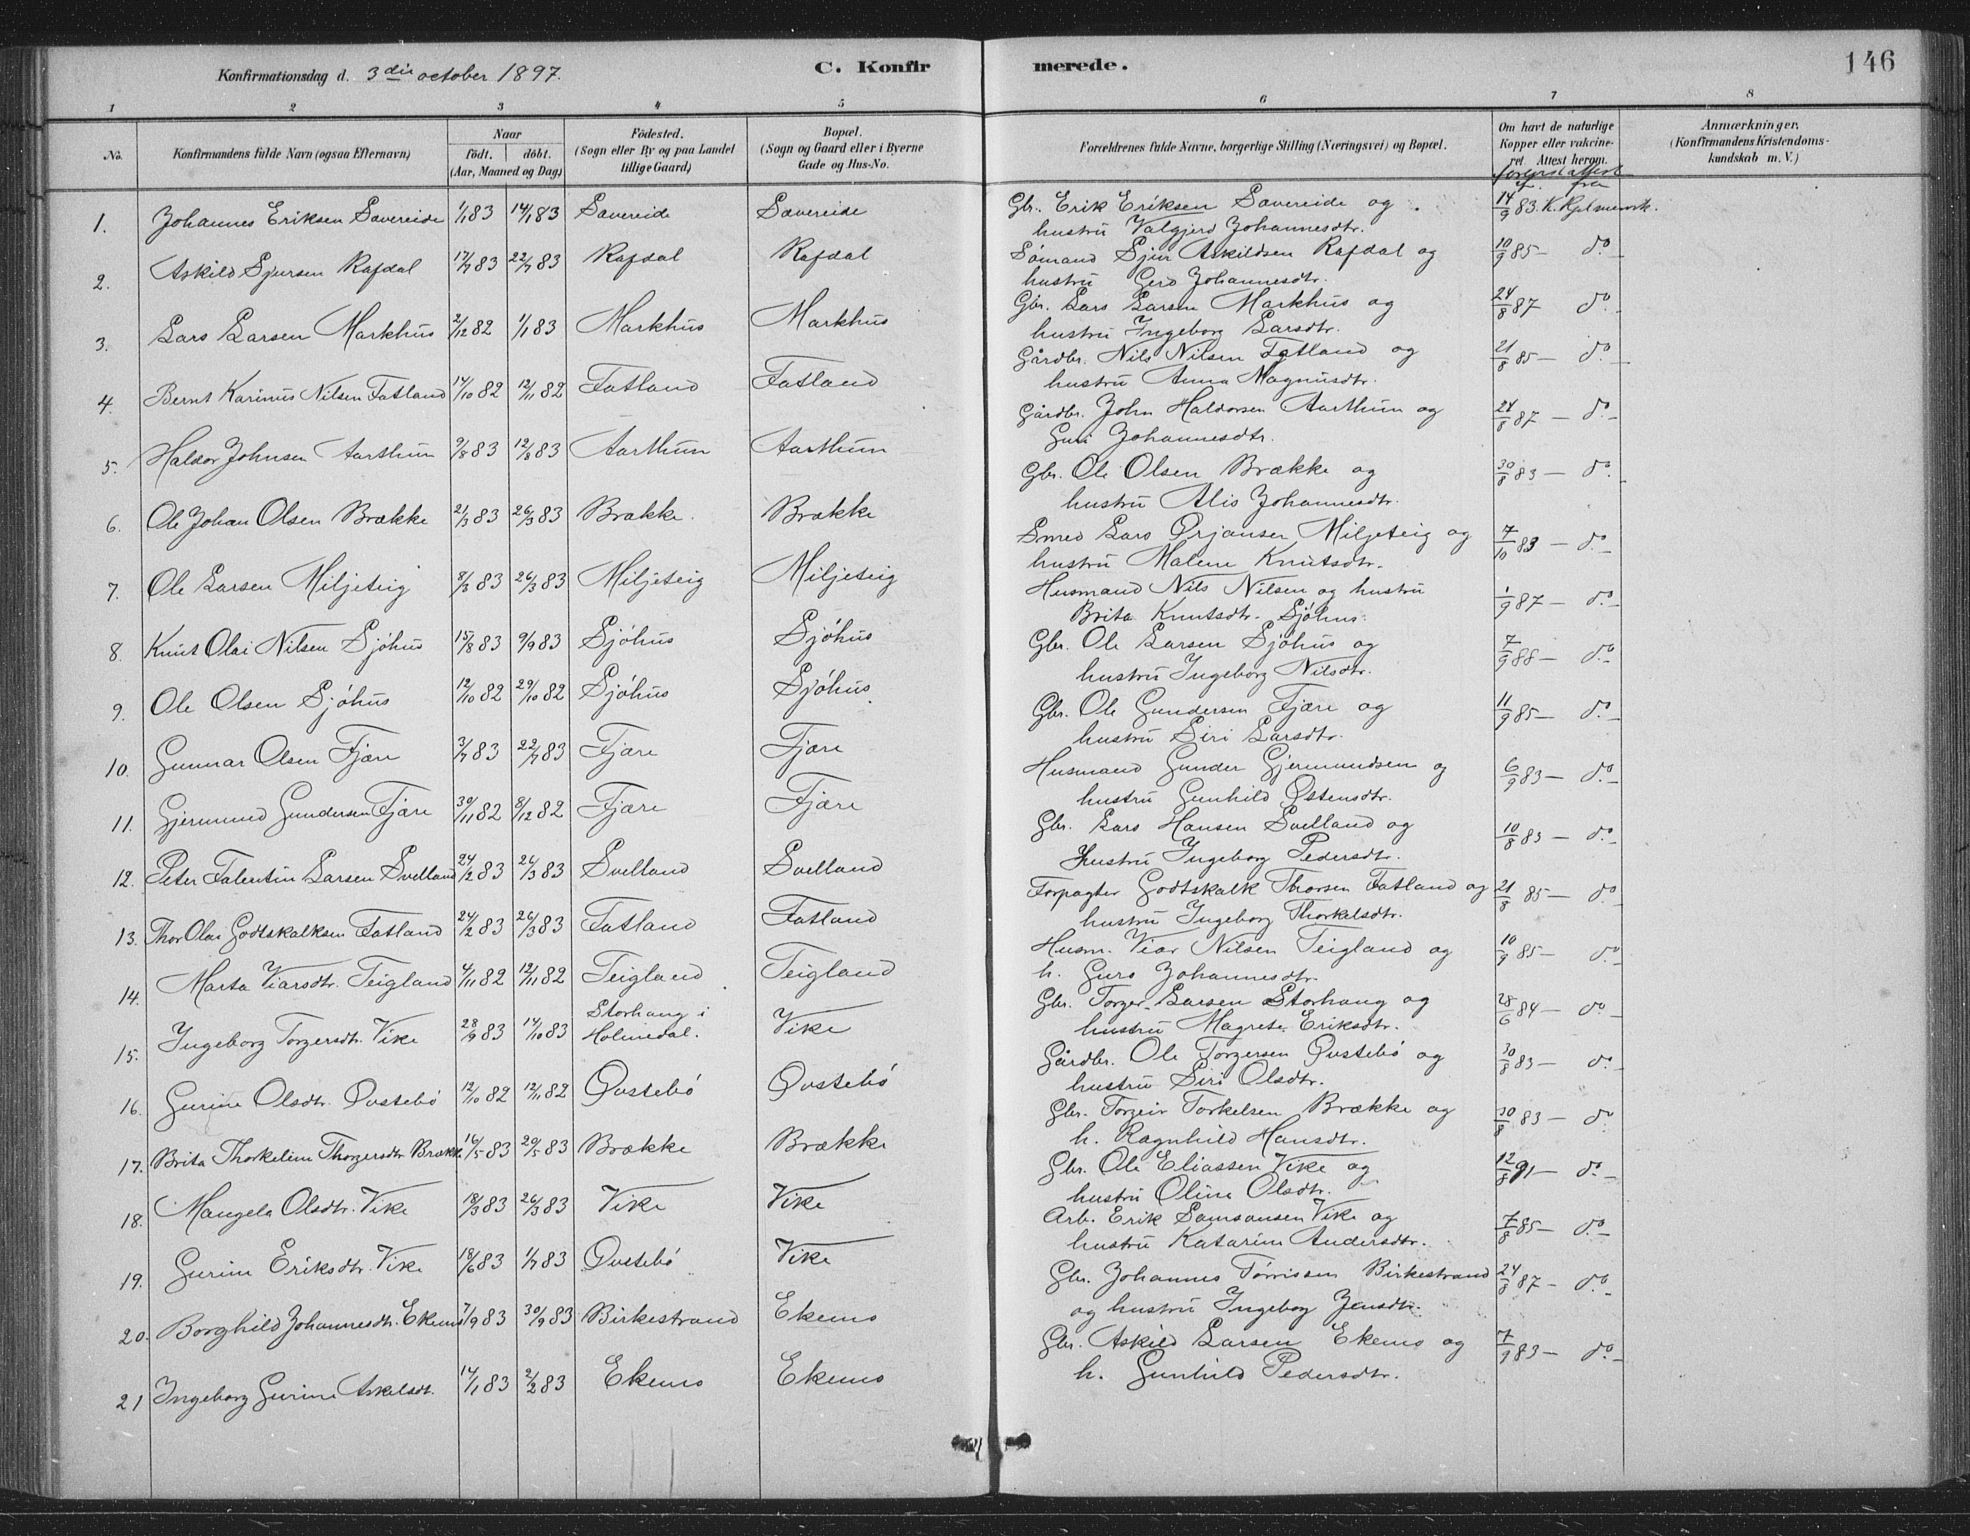 Konfirmationsdag d. 3die october 1897. C. Konfirmerede. 146
1 2 3 4 5 6 7 8
No. Konfirmandens fulde Navn (ogsaa Efternavn) Naar födt. döbt. (Aar, Maaned og Dag) Födested. (Sogn eller By og paa Landet tillige Gaard) Bopæl. (Sogn og Gaard eller i Byerne Gade og Hus-No. Forældrenes fulde Navne, borgerlige Stilling (Næringsvei) og Bopæl. Om havt de naturlige Kopper eller vakcineret. Attest herom. Anmærkninger. (Konfirmandens Kristendomskundskab m. V.)
1. Johannes Eriksen Sævereide 1/1 83 14/1 83 Sævereide Sævereide Gbr. Erik Eriksen Sævereide og
hustru Valgjerd Johannesdtr. 14/9 83.
2. Askild Sjursen Rafdal 17/7 83 22/7 83 Rafdal Rafdal Sömand Sjur Askildsen Rafdal og
hustru Gerd Johannesdtr. 10/9 85 — do —
3. Lars Larsen Markhus 2/12 82 1/1 83 Markhus Markhus Gbr. Lars Larsen Markhus og
hustru Ingeborg Larsdtr. 24/8 87 do
4. Bernt Karinus Nilsen Fatland 14/10 82 12/11 82 Fatland Fatland Gårdbr. Nils Nilsen Fatland og
hustru Anna Magnusdtr. 21/8 85 — do —
5. Haldor Johnsen Aarthun 9/8 83 12/8 83 Aarthun Aarthun Gårdbr. John Haldorsen Aarthun og
Guri Johannesdtr. 24/8 87 — do —
6. Ole Johan Olsen Brække 21/3 83 26/3 83 Brække. Brække Gbr. Ole Olsen Brække og
hustru Alis Johannesdtr. 30/8 83 — do
7. Ole Larsen Miljeteig 8/3 83 26/3 83 Miljeteig Miljeteig Smed Lars Örjansen Miljeteig og
hustru Malene Knutsdtr. 7/10 83 — do —
8. Knut Olai Nilsen Sjöhus 15/8 83 9/9 83 Sjöhus Sjöhus Husmand Nils Nilsen og hustru
Brita Knutsdtr. Sjöhus. 1/9 87 — do —
9. Ole Olsen Sjöhus 12/10 82 29/10 82 Sjöhus Sjöhus. Gbr. Ole Larsen Sjöhus og
hustru Ingeborg Nilsdtr. 7/9 88 — do —
10. Gunnar Olsen Fjære 3/7 83 22/7 83 Fjære Fjære Gbr. Ole Gundersen Fjære og
hustru Siri Larsdtr. 11/9 85 — do —
11. Gjermund Gundersen Fjære 30/11 82 8/12 82 Fjære Fjære Husmand Gunder Gjermundsen og
hustru Gunhild Östensdtr. 6/9 83 — do —
12. Peter Falentin Larsen Svelland 24/2 83 26/3 83 Svelland Svelland Gbr. Lars Hansen Svelland og
hustru Ingeborg Pedersdtr. 10/8 83 — do —
13. Thor Olai Godtskalksen Fatland 24/2 83 26/3 83 Fatland Fatland Forpagter Godtskalk Thorsen Fatland og
hustru Ingeborg Thorkelsdtr. 21/8 85 — do —
14. Marta Viarsdtr. Teigland 4/11 82 12/11 82 Teigland Teigland Husm. Viar Nilsen Teigland og
h. Guro Johannesdtr. 10/9 85 — do —
15. Ingeborg Torgersdtr. Vike 28/9 83 14/10 83 Storhaug i Holmedal. Vike Gbr. Torger Larsen Storhaug og
hustru Magrete Eriksdtr. 28/6 84 — do —
16. Gurine Olsdtr. Övstebö 12/10 82 12/11 82 Övstebö Övstebö Gårdbr. Ole Torgersen Övstebö og
hustru Siri Olsdtr. 30/8 83 — do —
17. Brita Thorkeline Thorgersdtr. Brække 16/5 83 20/5 83 Brække Brække Gbr. Torgeir Torkelsen Brække og
h. Ragnhild Hansdtr. 30/8 83 — do
18. Mangela Olsdtr. Vike 18/3 83 26/3 83 Vike Vike Gbr. Ole Eliassen Vike og
hustru Oline Olsdtr. 12/8 91 — do —
19. Gurine Eriksdtr. Vike 18/6 83 1/7 83 Övstebö Vike Arb. Erik Samsonsen Vike og
hustru Katarine Andersdtr. 7/8 85 — do —
20. Borghild Johannesdtr. Ekemo 7/9 83 30/9 83 Birkestrand Ekemo Gbr. Johannes Törrissen Birkestrand
og hustru Ingeborg Jensdtr. 24/8 87 — do
21 Ingeborg Gurine Askelsdt. 14/1 83 2/2 83 Ekemo Ekemo Gbr. Askild Larsen Ekemo og
h. Gunhild Pedersdtr. 7/9 83 — do —